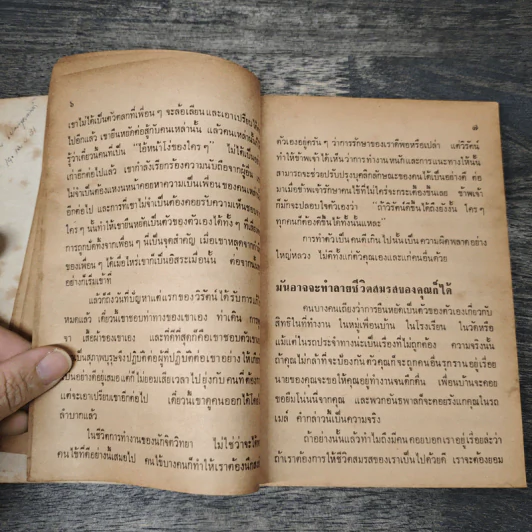 ๖
เขาไม่ได้เป็นตัวตลกที่เพื่อน ๆ จะล้อเลียนและเอาเปรียบ
ไปอีกแล้ว เขายืนหยัดต่อสู้กับคนเหล่านั้น แล้วคนเหล่านั้นก็
รู้ว่าเดี๋ยวนี้คนที่เป็น "ไอ้หน้าโง่ของใคร ๆ" ไม่ได้เป็น
เก่าอีกต่อไปแล้ว เขากำลังเรียกร้องความนับถือจากผู้อื่น
ไม่จำเป็นต้องแหงนหน้าคอยหาความเป็นเพื่อนของคนเหล่า
อีกต่อไป และการที่เขาไม่จำเป็นต้องคอยรับความเห็นชอบ
ใคร ๆ นั้นทำให้เขายืนหยัดเป็นตัวของตัวเองได้ทั้ง ๆ ที่
การถูกบีบทิ้งจากเพื่อน ๆ นเป็นจุดสำคัญ เมื่อเขาหลุดจาก
ของเพื่อน ๆ ได้เมื่อไหร่เขาก็เป็นอิสระเมื่อนั้น ต่อจาก
อย่างก็เริ่มเข้าที่
แล้วก็ถึงวันที่ปัญหาแต่แรกของวิรัตน์ได้รับการแก้
หมดแล้ว เดี๋ยวนี้เขาชอบท่าทางของเขาเอง ท่าเดิน การ
จา เสื้อผ้าของเขาเอง และที่ดีที่สุดก็คือเขาชอบตัวเขา
เป็นสุภาพบุรุษจึงปฏิบัติต่อผู้ที่ปฏิบัติต่อเขาอย่างให้เกียรติ
เป็นอย่างดีอยู่เสมอแต่ก็ไม่ยอมเสียเวลาไปยุ่งกับคนที่ต้อง
แต่จะเอาเปรียบเขาอีกต่อไป เดี๋ยวนี้เขาดูคนออกได้โดย
ลำบากแล้ว
ในชีวิตการทำงานของนักจิตวิทยา ไม่ใช่ว่าจะได้
คนไข้ที่ดีอย่างนี้เสมอไป คนไข้บางคนก็ทำให้เราต้องนึก
๗
ตัวเองอยู่ครัน ๆ ว่าการรักษาของเราดีพอหรือเปล่า แต่วิรัตน์
ทำให้ข้าพเจ้าได้เห็นว่าการทำงานหนักและการแนะทางให้นั้น
สามารถจะช่วยปรับปรุงบุคลิกลักษณะของคนได้เป็นอย่างดี ต่อ
มาเมื่อข้าพเจ้ารักษาคนไข้ที่ไม่ใคร่จะกระเตื้องขึ้นเลย ข้าพเจ้า
ก็มักจะปลอบใจตัวเองว่า "ถ้าวิรัตน์ดีขึ้นได้ถึงยังงั้น ใคร ๆ
ทุกคนก็ต้องดีขึ้นได้ทั้งนั้นแหละ"
การทำตัวเป็นคนดีเกินไปนั้นเป็นความผิดพลาดอย่าง
ใหญ่หลวง ไม่ดีทั้งแก่ตัวคุณเองและแก่คนอื่นด้วย
มันอาจจะทำลายชีวิตสมรสของคุณก็ได้
คนบางคนเถียงว่าการยืนหยัดเป็นตัวของตัวเองเกี่ยวกับ
สิทธิในที่ทำงาน ในหมู่เพื่อนบ้าน ในโรงเรียน ในวัดหรือ
แม้แต่ในรถประจำทางน่ะเป็นเรื่องที่ไม่ถูกต้อง ความจริงนั้น
ถ้าคุณไม่กล้าที่จะป้องกันตัวคุณก็จะถูกคนอื่นรุกรานอยู่เรื่อย
นายของคุณจะขอให้คุณอยู่ทำงานจนดึกดื่น เพื่อนบ้านจะคอย
ขอยืมโน่นนี่จากคุณ และพวกอันธพาลก็จะคอยรังแกคุณในรถ
เมล์ คำกล่าวนี้เป็นความจริง
ถ้าอย่างนั้นแล้วทำไมถึงมีคนคอยบอกเราอยู่เรื่อยล่ะว่า
ถ้าเราต้องการให้ชีวิตสมรสของเราเป็นไปด้วยดี เราจะต้องยอม